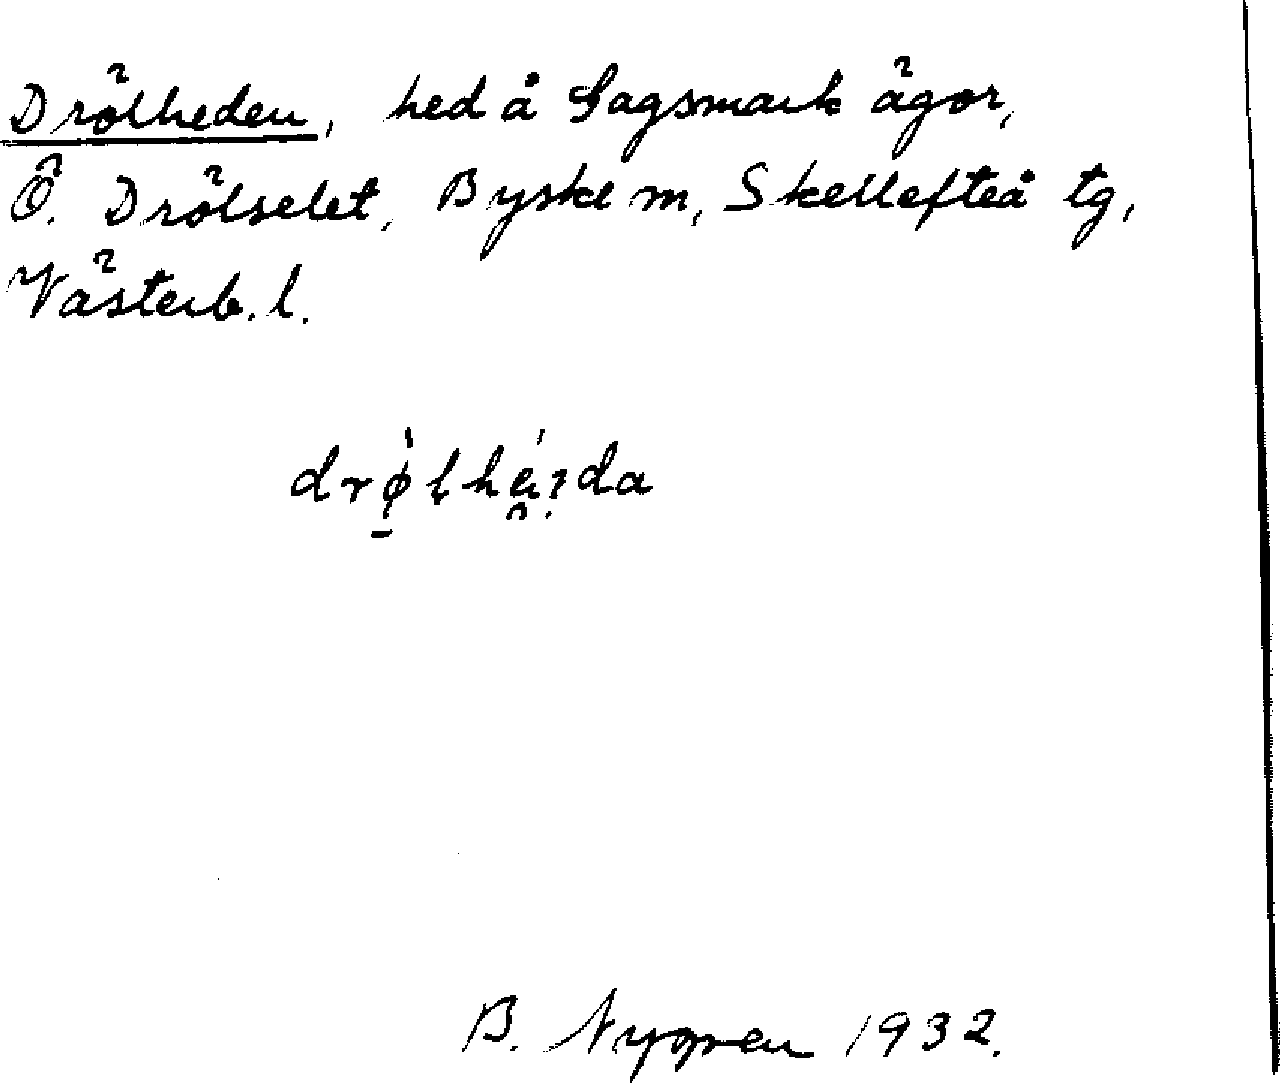 Drölheden, hed å Gagsmark ägor,
Ö. Drölselet, Byske m, Skellefteå tg,
Västerb. l.
B. Nygren 1932.